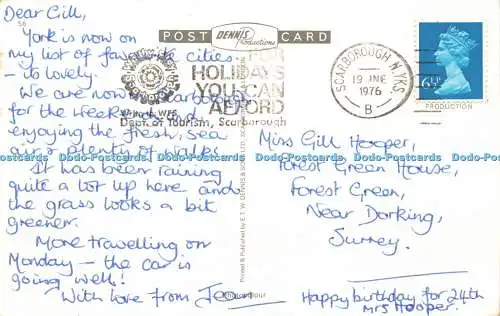 58
Dear Gill,
York is now on
my list of favourite cities
– its lovely.
We are now in Scarborough
for the weekend and
enjoying the fresh, sea
air & plenty of walks.
It has been raining
quite a lot up here and
the grass looks a bit
greener.
More travelling on
Monday – the car is
going well!
With love from
POST CARD
DENNIS
Productions
FOR
HOLIDAYS
YOU CAN
AFFORD
Dept. of Tourism, Scarborough
Printed & Published by E. T. W. DENNIS & SONS LTD.
Photocolour
SCARBOROUGH N. YKS
19 JNE
1976
B
6½P
PRODUCTION
Miss Gill Hooper,
Forest Green House,
Forest Green,
Near Dorking,
Surrey.
Happy birthday for 24th
Mrs Hooper.
Dodo-Postcards Dodo-Postcards Dodo-Postcards Dodo-Postcards Dodo-Postcards